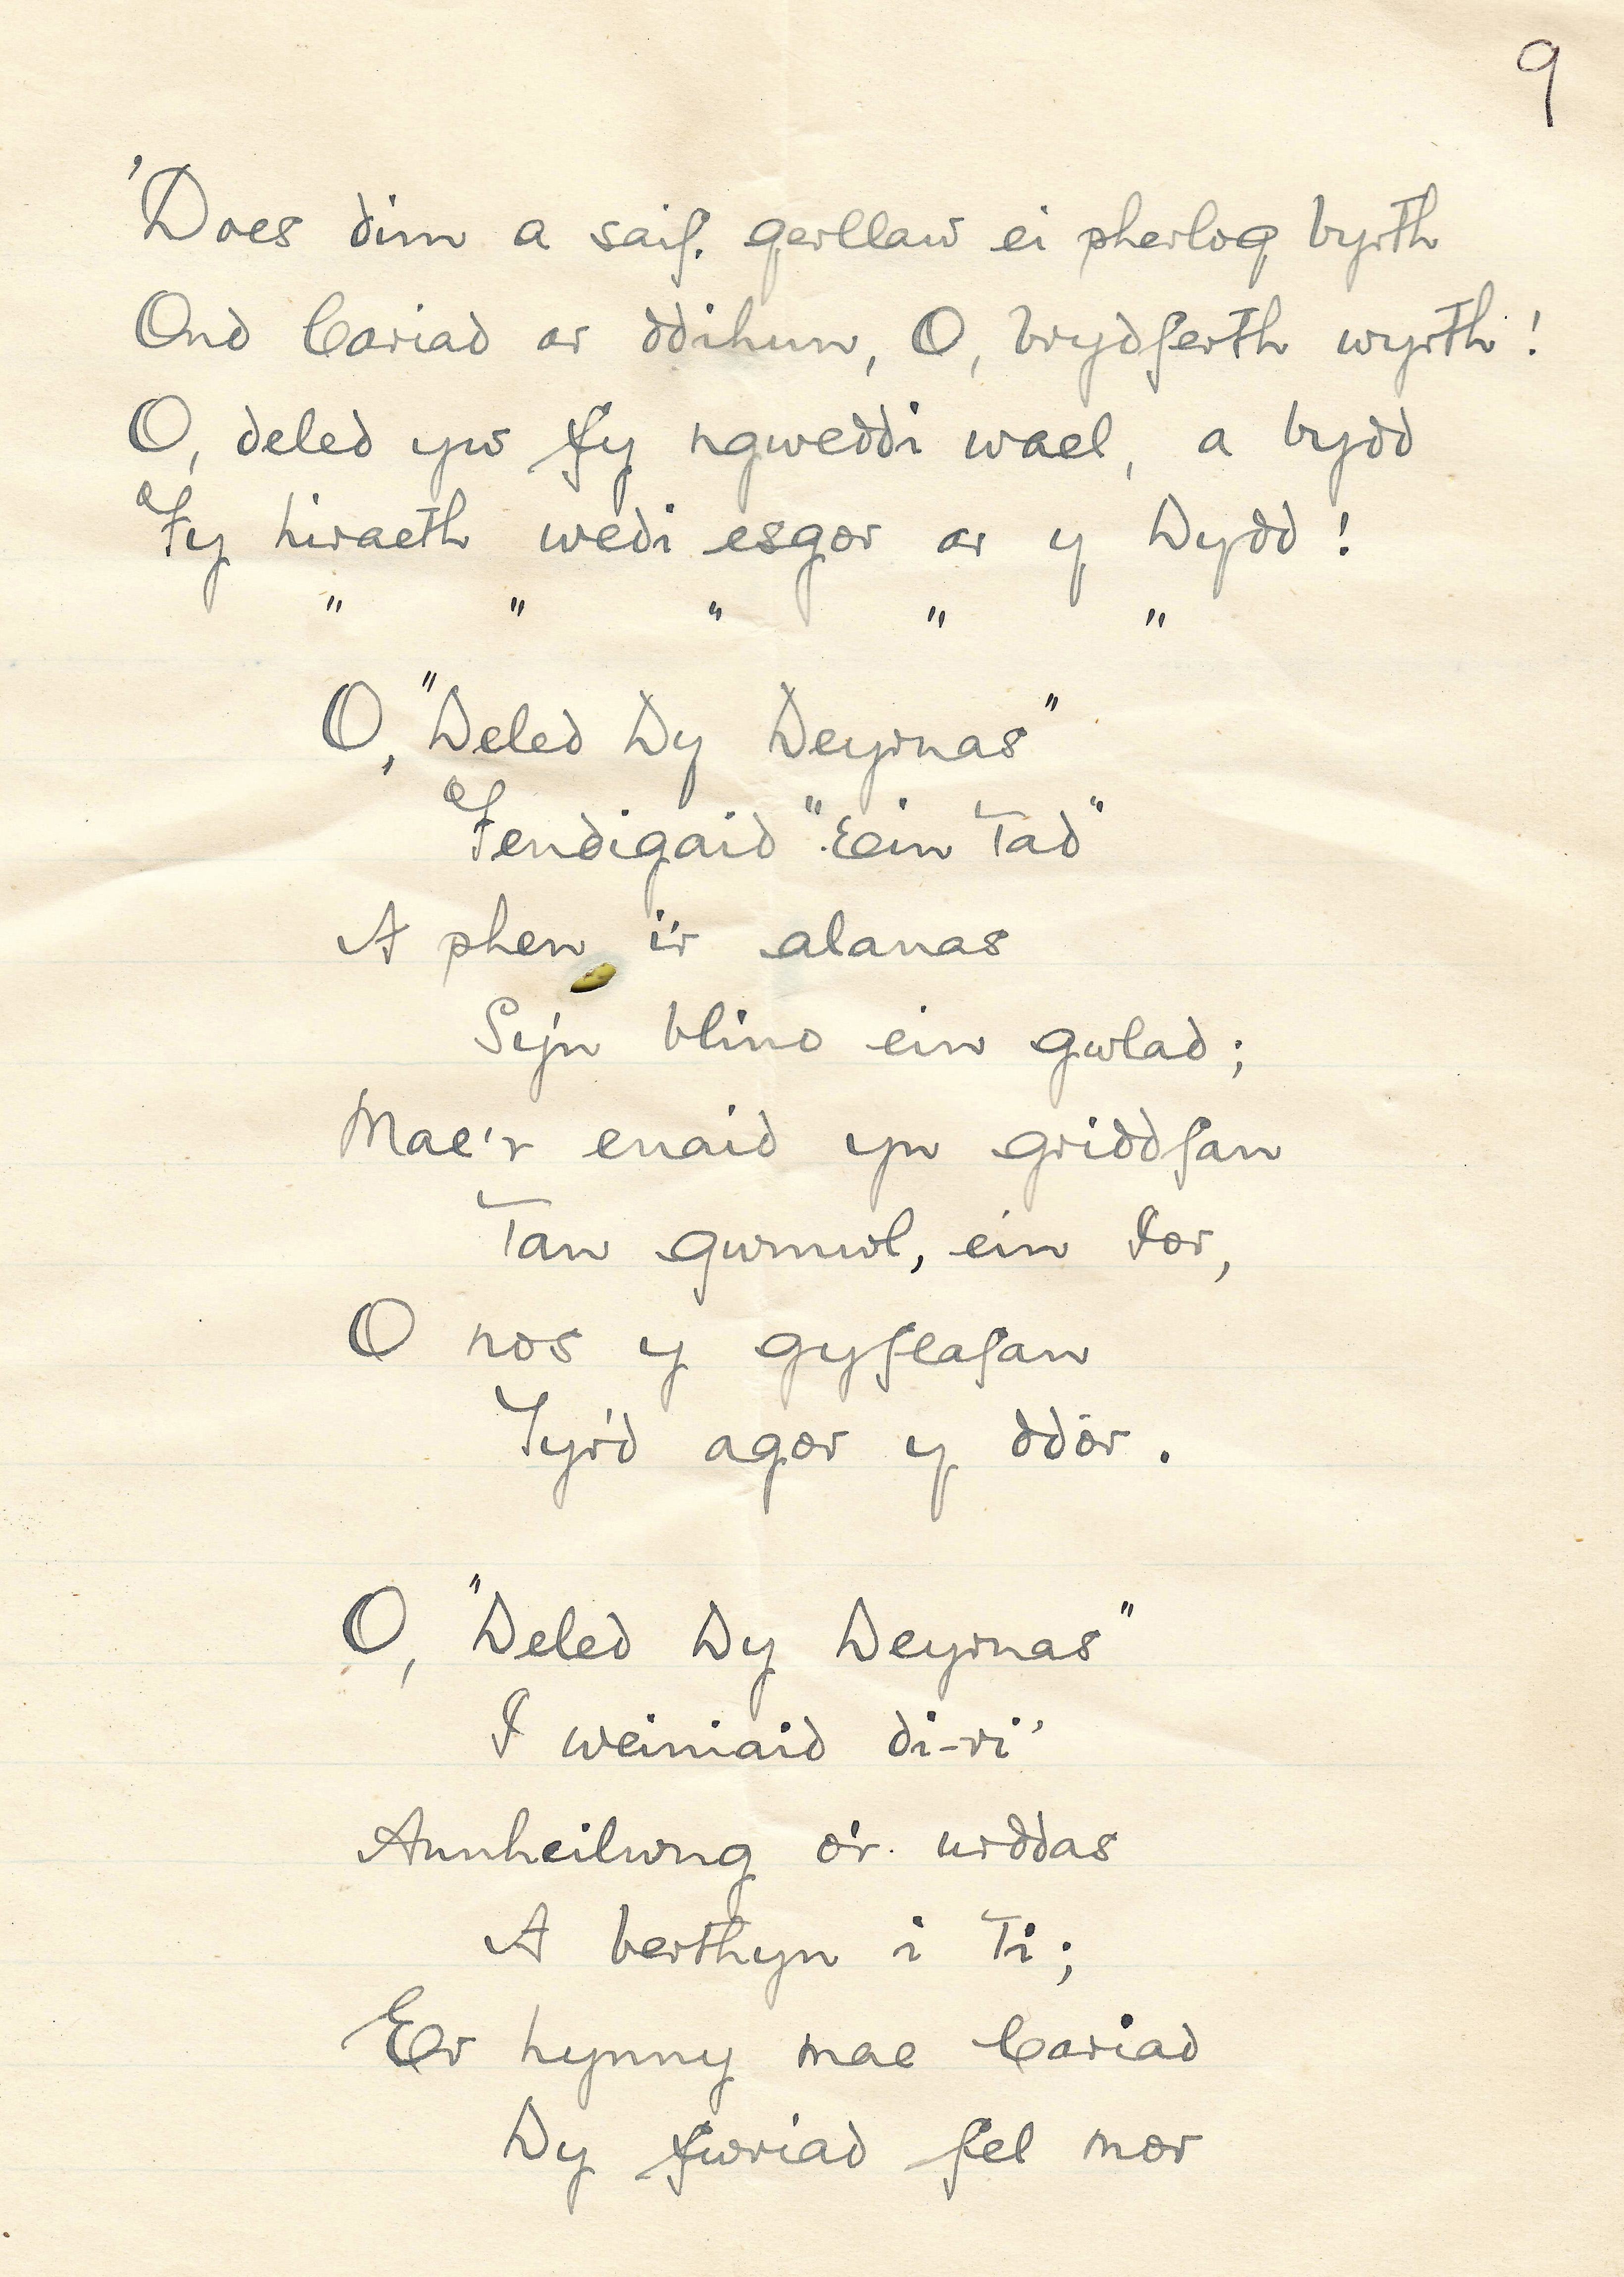 9
'Does dim a saif. gerllaw ei pherlog byrth
Ond Cariad ar ddihun, O, brydferth wyrth!
O, deled yw fy ngweddi wael, a bydd
Fy hiraeth wedi esgor ar y Dydd!
" " " " "
O, "Deled Dy Deyrnas"
Fendigaid "Ein Tad"
A phen i'r alanas
Sy'n blino ein gwlad;
Mae'r enaid yn griddfan
Tan gwmwl, ein Ior,
O nos y gyflafan
Tyr'd agor y ddôr.
O, "Deled Dy Deyrnas"
I weiniaid di-ri'
Annheilwng o'r urddas
A berthyn i Ti;
Er hynny mae Cariad
Dy fwriad fel mor